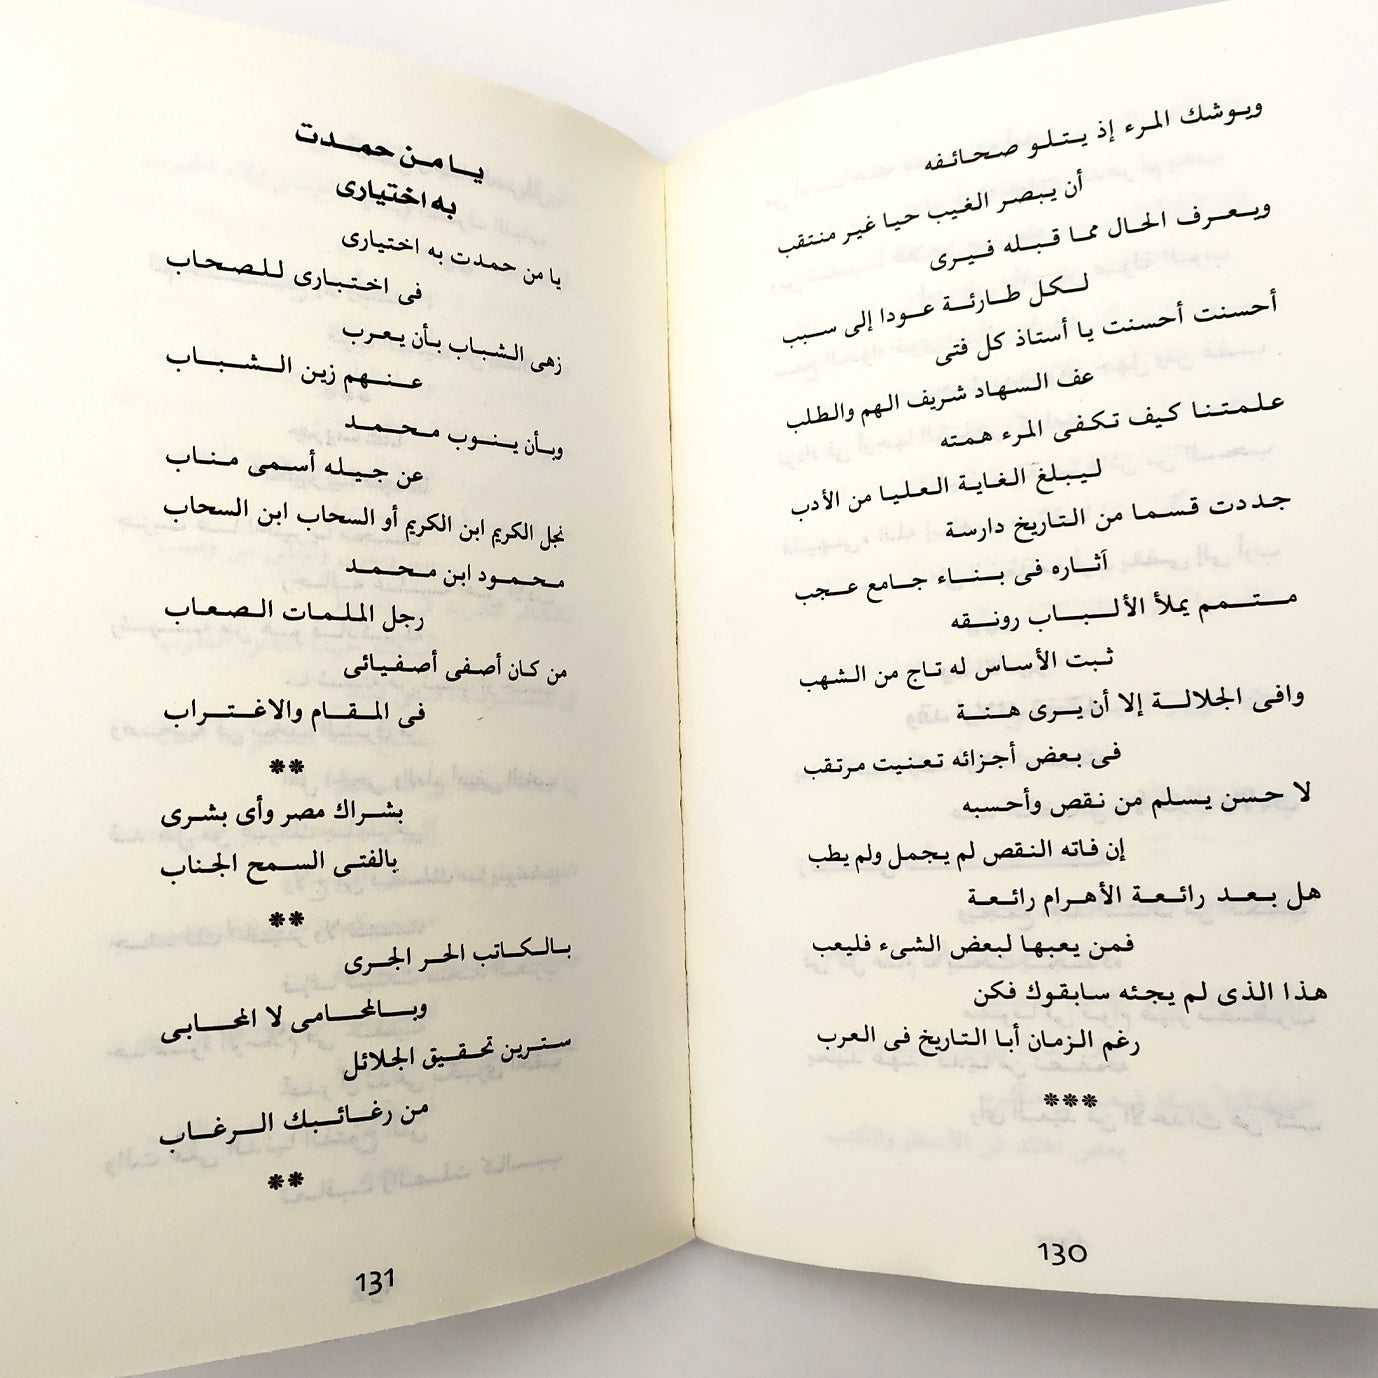 ويوشك المرء إذ يتلو صحائفه
أن يبصر الغيب حيا غير منتقب
ويعرف الحال مما قبله فيرى
لكل طارئة عودا إلى سبب
أحسنت أحسنت يا أستاذ كل فتى
عف السهاد شريف الهم والطلب
علمتنا كيف تكفى المرء همته
ليبلغ الغاية العليا من الأدب
جددت قسما من التاريخ دارسة
آثاره فى بناء جامع عجب
متمم يملأ الألباب رونقه
ثبت الأساس له تاج من الشهب
وافى الجلالة إلا أن يرى هنة
فى بعض أجزائه تعنيت مرتقب
لا حسن يسلم من نقص وأحسبه
إن فاته النقص لم يجمل ولم يطب
هل بعد رائعة الأهرام رائعة
فمن يعبها لبعض الشىء فليعب
هذا الذى لم يجئه سابقوك فكن
رغم الزمان أبا التاريخ فى العرب
***
130
يا من حمدت
به اختيارى
يا من حمدت به اختيارى
فى اختبارى للصحاب
زهى الشباب بأن يعرب
عنهم زين الشباب
وبأن ينوب محمد
عن جيله أسمى مناب
نجل الكريم ابن الكريم أو السحاب ابن السحاب
محمود ابن محمد
رجل الملمات الصعاب
من كان أصفى أصفيائى
فى المقام والاغتراب
**
بشراك مصر وأى بشرى
بالفتى السمح الجناب
**
بالكاتب الحر الجرى
وبالمحامى لا المحابى
سترين تحقيق الجلائل
من رغائبك الرغاب
**
131